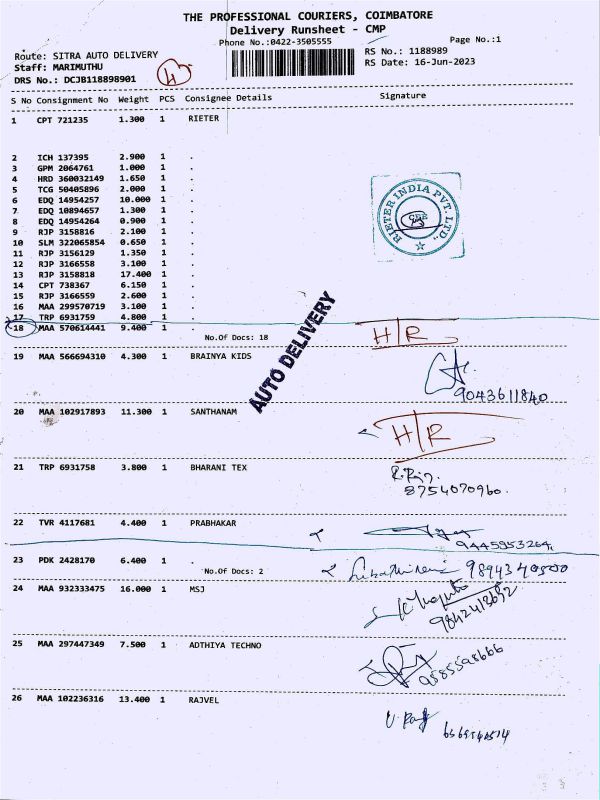 THE PROFESSIONAL COURIERS, COIMBATORE
Delivery Runsheet - CMP
Phone No.:0422-3505555 Page No.:1
Route: SITRA AUTO DELIVERY RS No.: 1188989
Staff: MARIMUTHU RS Date: 16-Jun-2023
DRS No.: DCJB118898901
S No Consignment No Weight PCS Consignee Details Signature
1 CPT 721235 1.300 1 RIETER
2 ICH 137395 2.900 1 .
3 GPM 2064761 1.000 1 .
4 HRD 360032149 1.650 1 .
5 TCG 50405896 2.000 1 .
6 EDQ 14954257 10.000 1 .
7 EDQ 10894657 1.300 1 .
8 EDQ 14954264 0.900 1 .
9 RJP 3158816 2.100 1 .
10 SLM 322065854 0.650 1 .
11 RJP 3156129 1.350 1 .
12 RJP 3166558 3.100 1 .
13 RJP 3158818 17.400 1 .
14 CPT 738367 6.150 1 .
15 RJP 3166559 2.600 1 .
16 MAA 299570719 3.100 1 .
17 TRP 6931759 4.800 1 .
18 MAA 570614441 9.400 1 .
No.Of Docs: 18
RIETER INDIA PVT. LTD.
H/R
AUTO DELIVERY
19 MAA 566694310 4.300 1 BRAINYA KIDS
9043611840
20 MAA 102917893 11.300 1 SANTHANAM
H/R
21 TRP 6931758 3.800 1 BHARANI TEX
8754070960.
22 TVR 4117681 4.400 1 PRABHAKAR
9445953264
23 PDK 2428170 6.400 1 .
No.Of Docs: 2
9894340500
24 MAA 932333475 16.000 1 MSJ
9842418692
25 MAA 297447349 7.500 1 ADTHIYA TECHNO
9585598666
26 MAA 102236316 13.400 1 RAJVEL